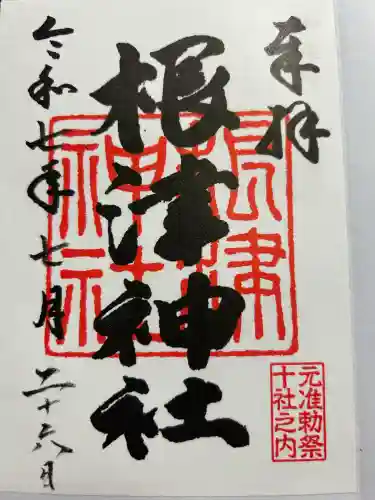 奉拝
根津神社
根津神社
元准勅祭
十社之内
令和七年七月二十六日